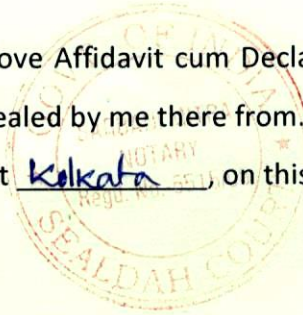 ove Affidavit cum Decla
ealed by me there from.
t Kolkata, on this
NOTARY
SEALDAH COUR